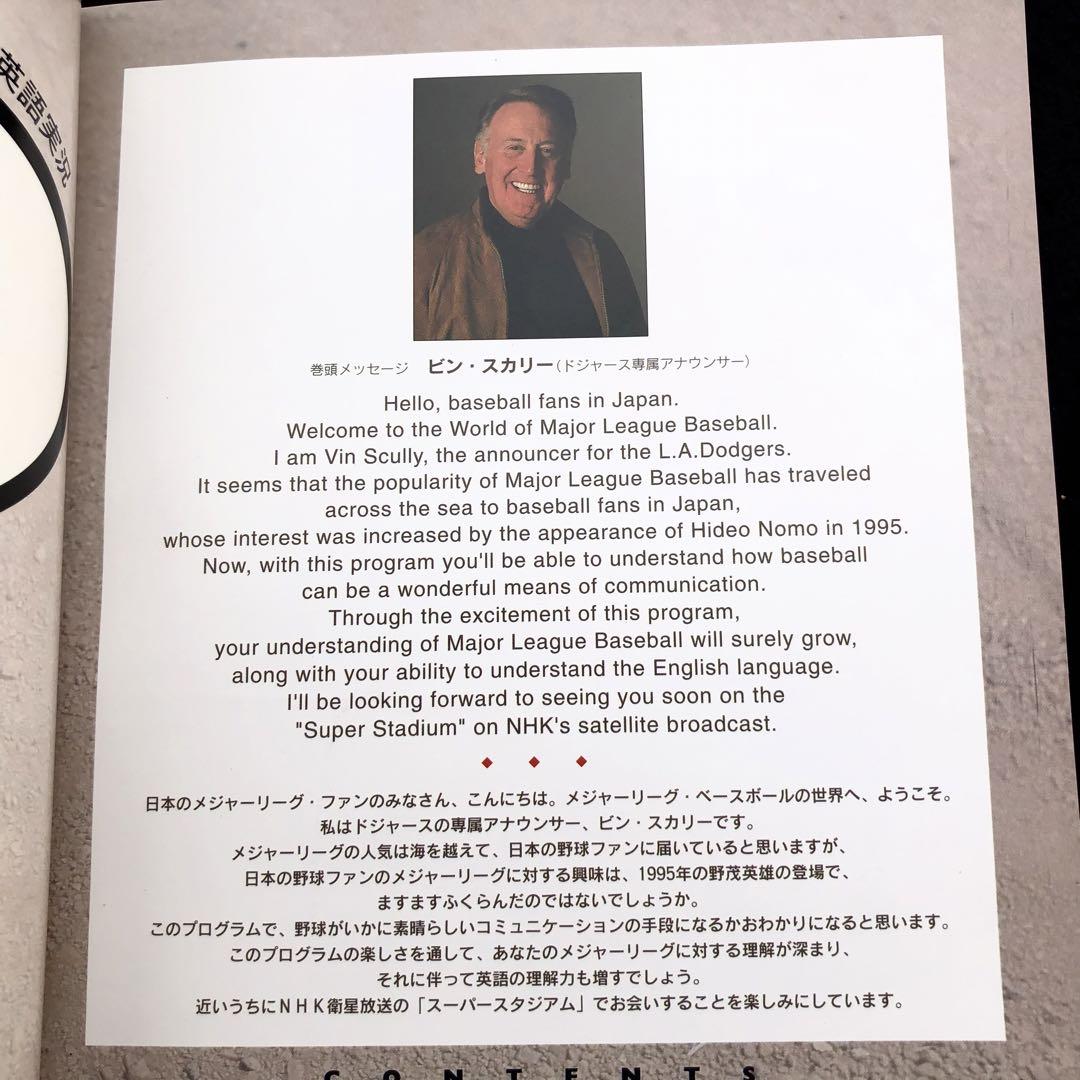 英語実況
巻頭メッセージ ビン・スカリー（ドジャース専属アナウンサー）
Hello, baseball fans in Japan.
Welcome to the World of Major League Baseball.
I am Vin Scully, the announcer for the L.A.Dodgers.
It seems that the popularity of Major League Baseball has traveled
across the sea to baseball fans in Japan,
whose interest was increased by the appearance of Hideo Nomo in 1995.
Now, with this program you'll be able to understand how baseball
can be a wonderful means of communication.
Through the excitement of this program,
your understanding of Major League Baseball will surely grow,
along with your ability to understand the English language.
I'll be looking forward to seeing you soon on the
"Super Stadium" on NHK's satellite broadcast.
日本のメジャーリーグ・ファンのみなさん、こんにちは。メジャーリーグ・ベースボールの世界へ、ようこそ。
私はドジャースの専属アナウンサー、ビン・スカリーです。
メジャーリーグの人気は海を越えて、日本の野球ファンに届いていると思いますが、
日本の野球ファンのメジャーリーグに対する興味は、1995年の野茂英雄の登場で、
ますますふくらんだのではないでしょうか。
このプログラムで、野球がいかに素晴らしいコミュニケーションの手段になるかおわかりになると思います。
このプログラムの楽しさを通して、あなたのメジャーリーグに対する理解が深まり、
それに伴って英語の理解力も増すでしょう。
近いうちにＮＨＫ衛星放送の「スーパースタジアム」でお会いすることを楽しみにしています。
CONTENTS